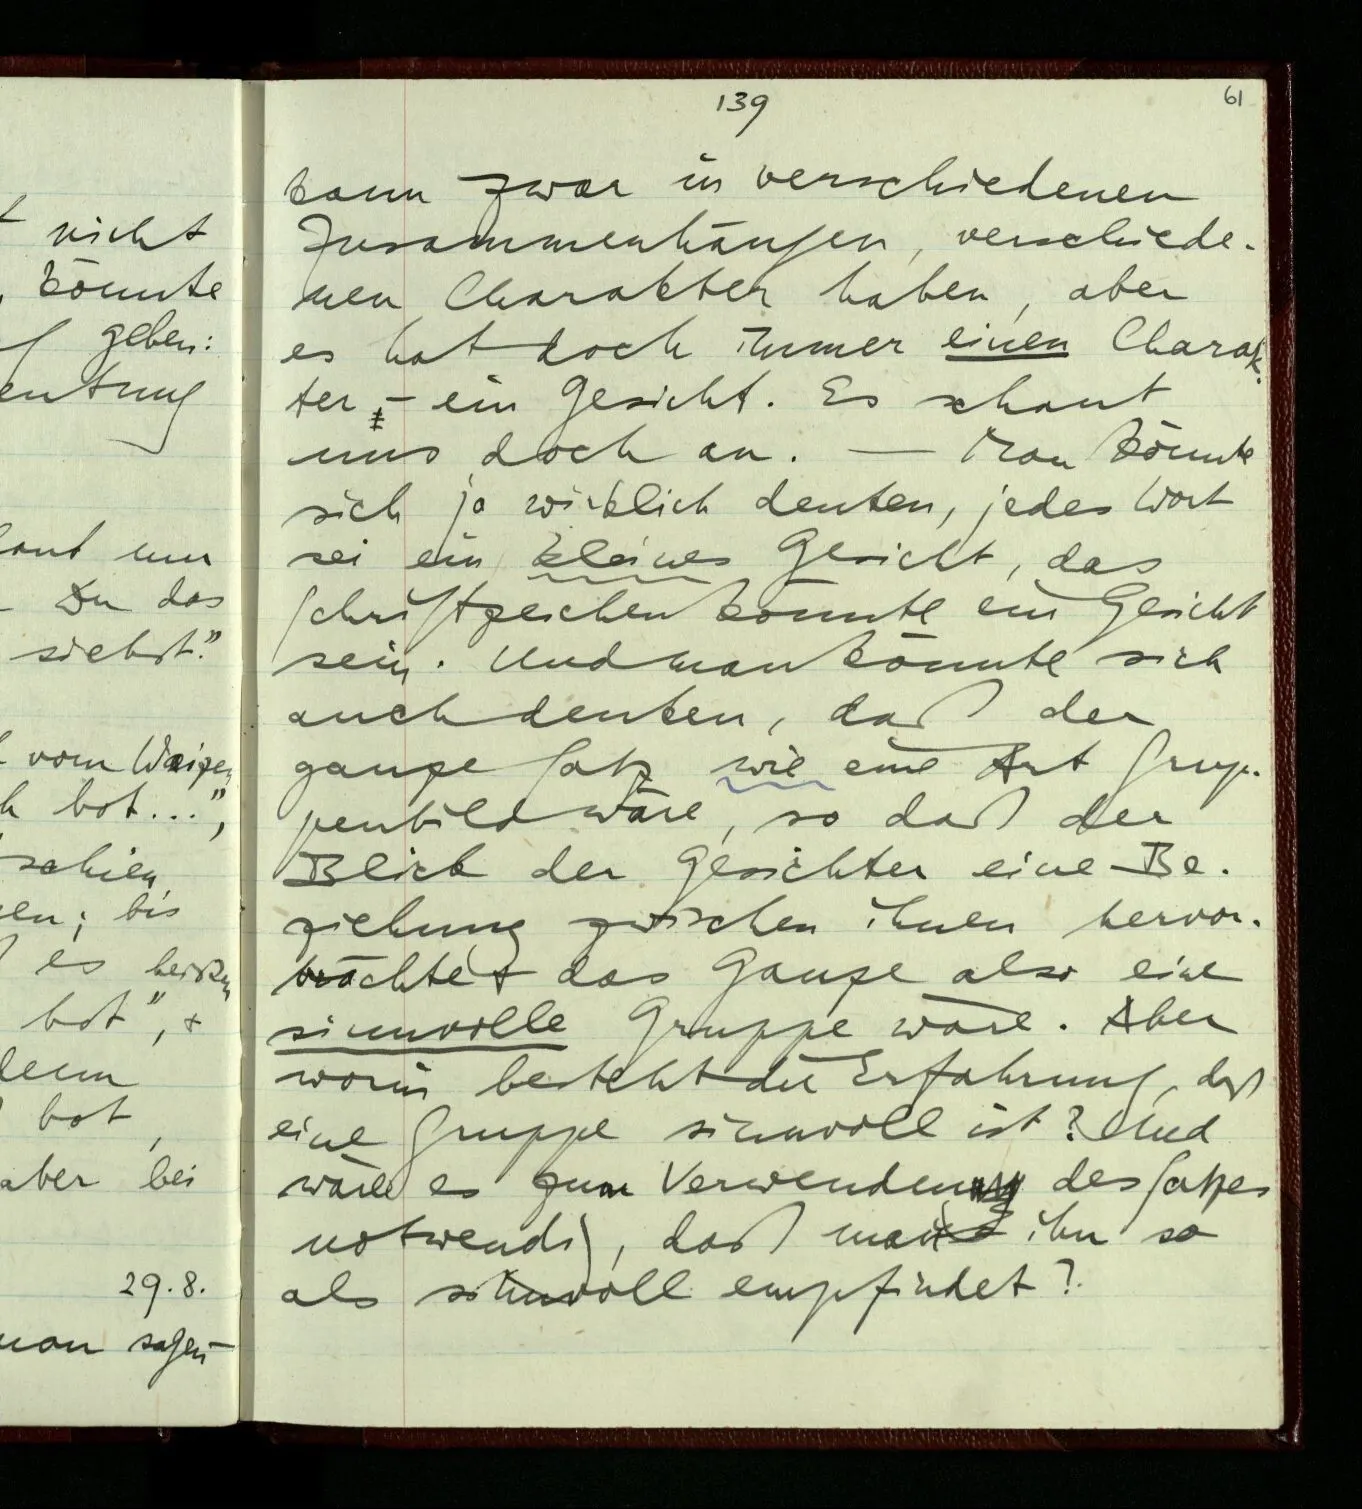 t nicht
, könnte
geben:
entung
hant nun
– Du das
siehst."
t vom Weizen
h bot...",
schien,
en; bis
es heißen
bot", +
denn
bot,
aber bei
29.8.
man sagen –
139
61
kann zwar in verschiedenen
Zusammenhängen, verschiede-
nen Charakter haben, aber
es hat doch immer einen Charak-
ter, – ein Gesicht. Es schaut
uns doch an. — Man könnte
sich ja wirklich denken, jedes Wort
sei ein kleines Gesicht, das
Schriftzeichen könnte ein Gesicht
sein. Und man könnte sich
auch denken, daß der
ganze Satz wie eine Art Grup-
penbild wäre, so daß der
Blick der Gesichter eine Be-
ziehung zwischen ihnen hervor-
brächte + das Ganze also eine
sinnvolle Gruppe wäre. Aber
worin besteht die Erfahrung, daß
eine Gruppe sinnvoll ist? Und
wäre es zum Verwenden des Satzes
notwendig, daß man ihn so
als sinnvoll empfindet?